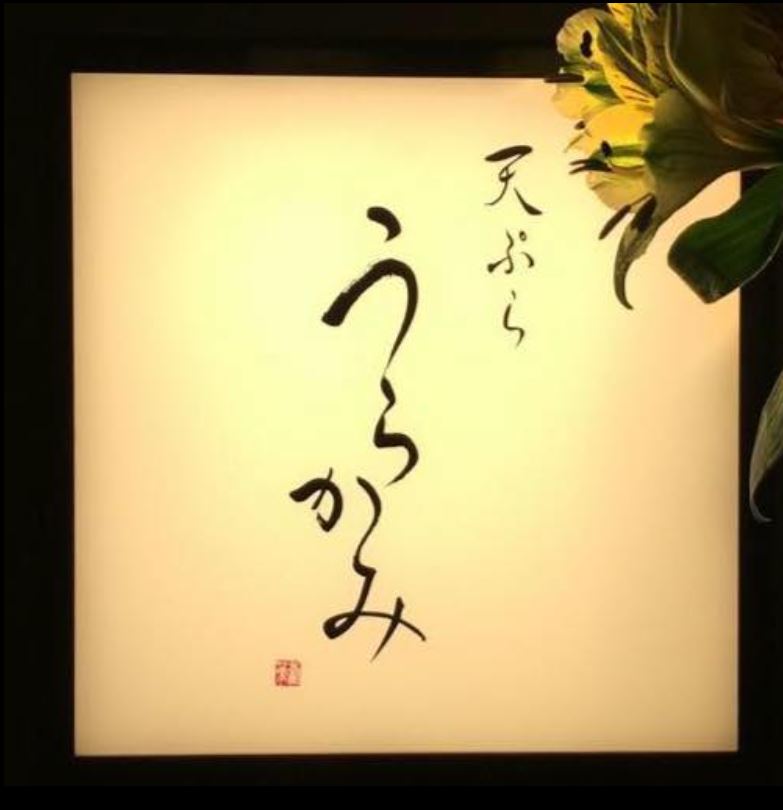 天ぷら
うらかみ